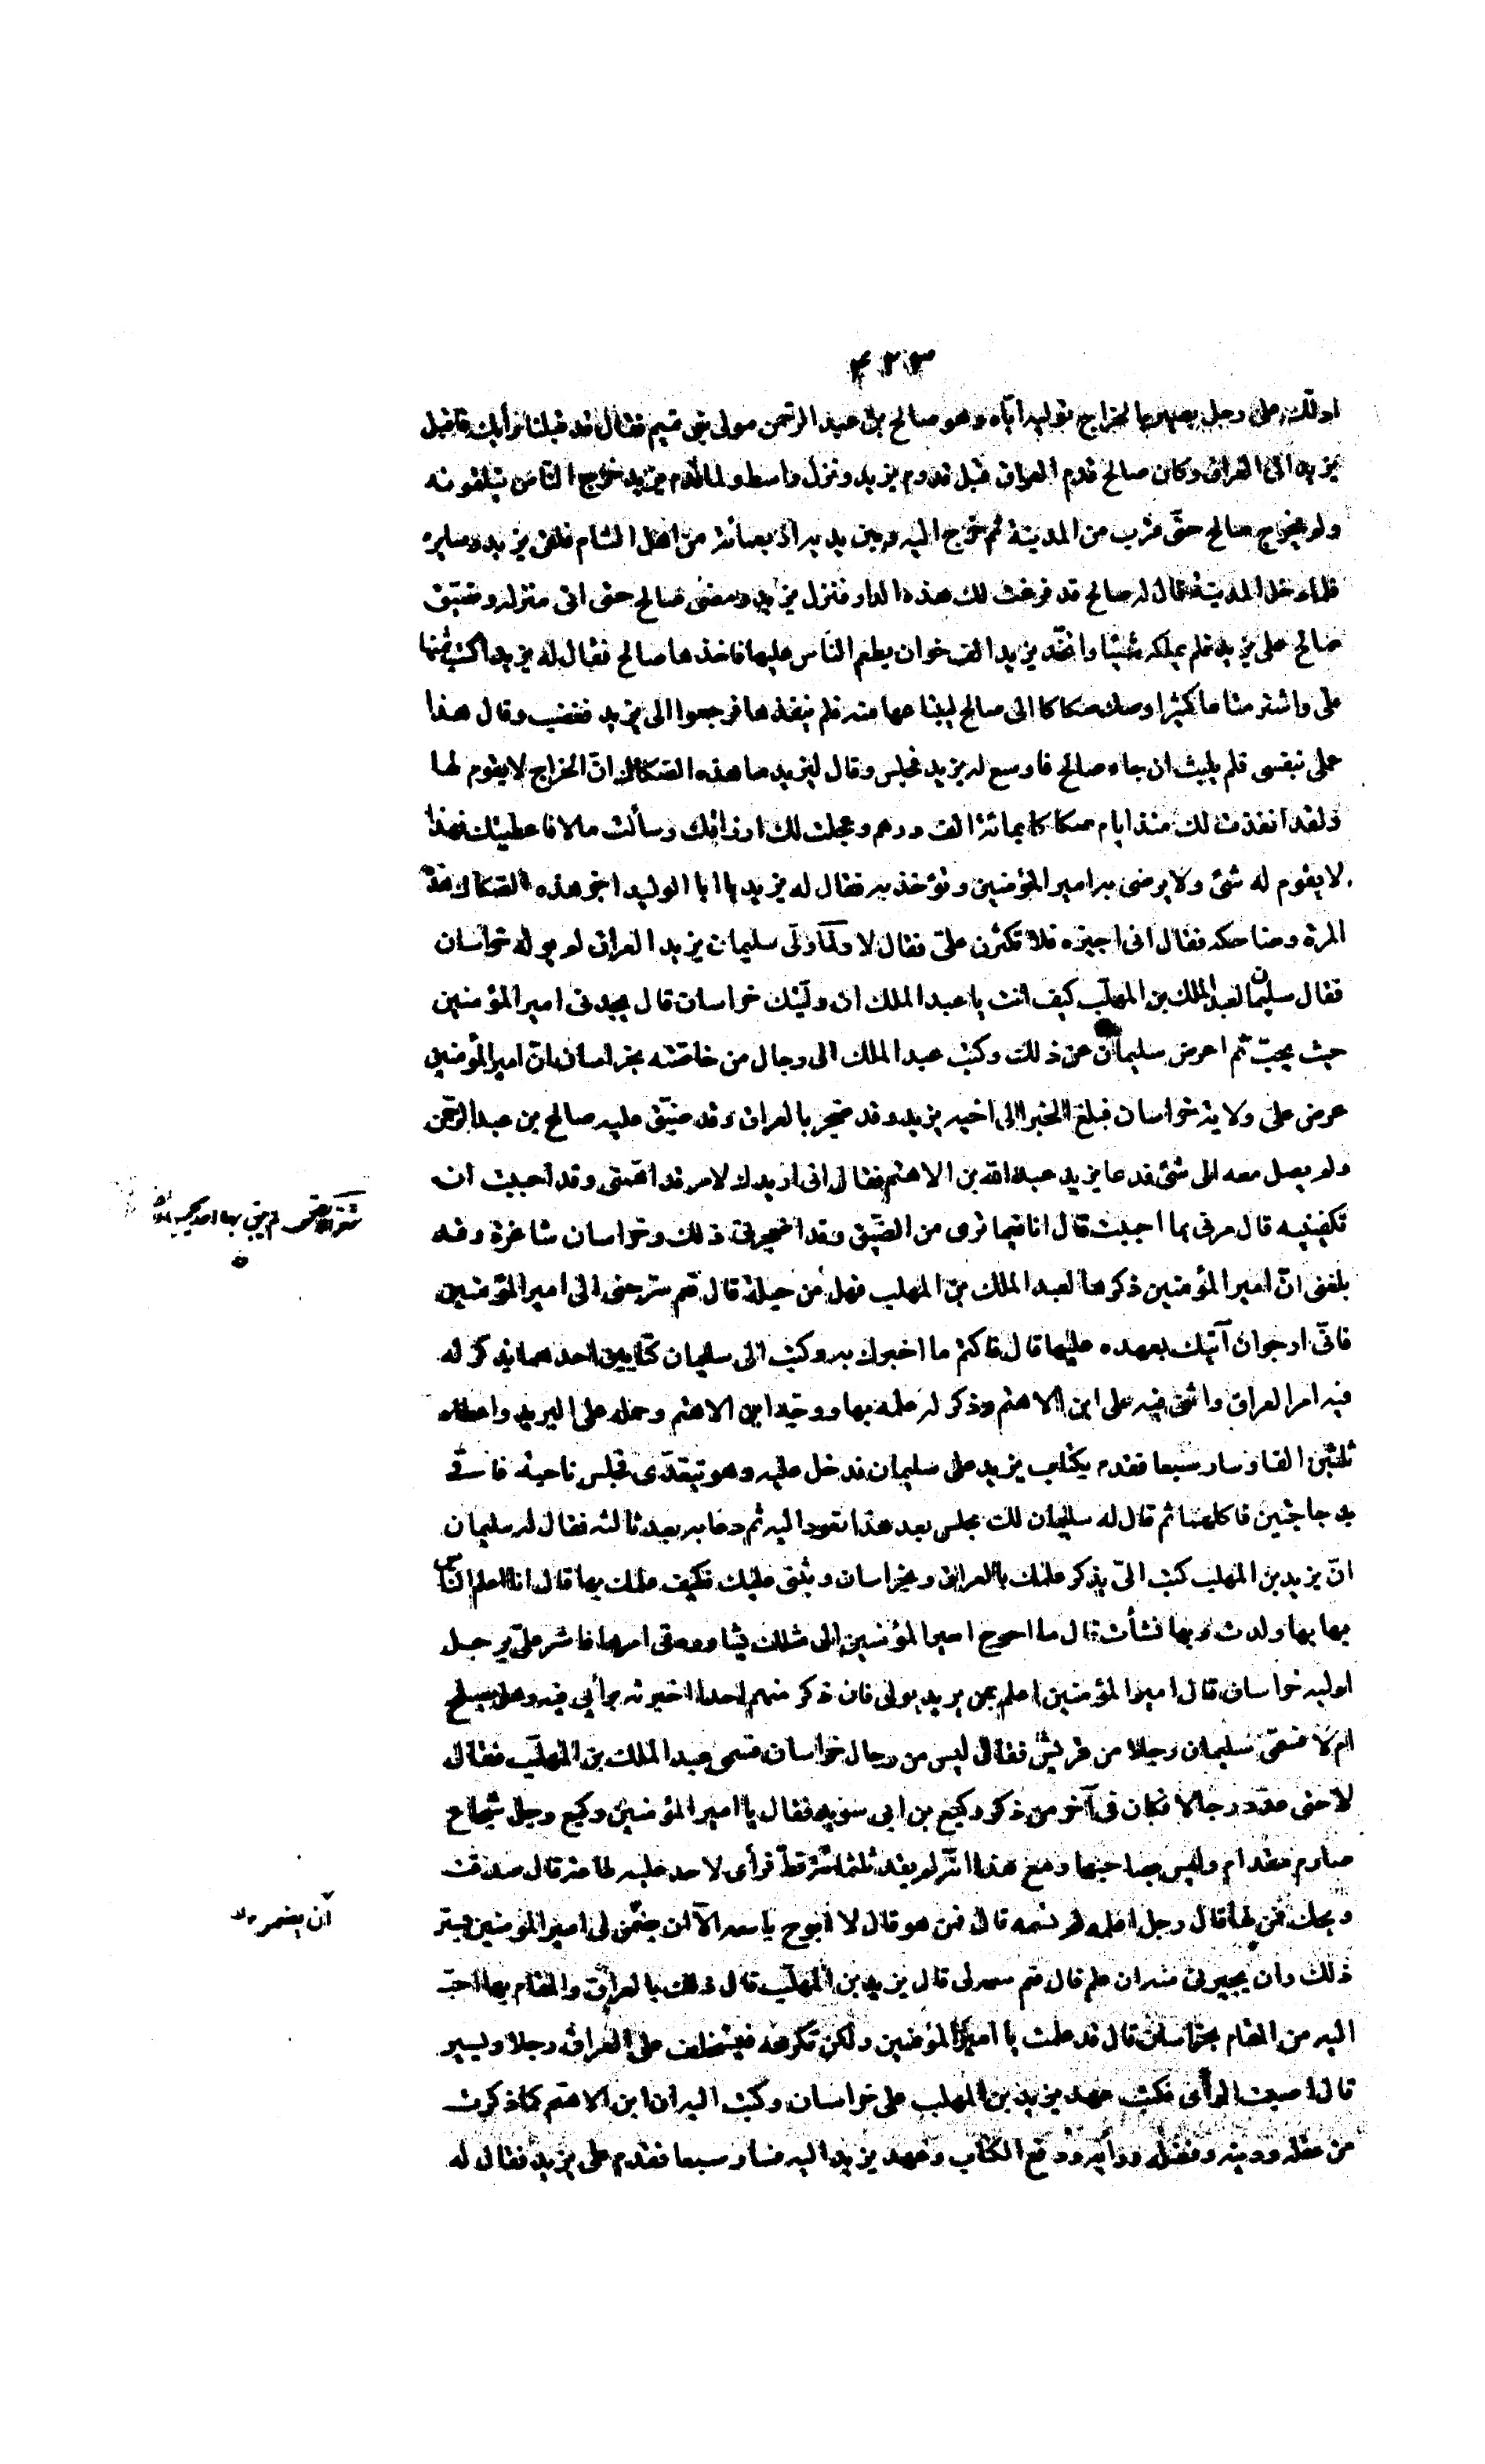 ٤٢٣
ادلّك على رجل بصير بالخراج توليه اياه وهو صالح بن عبد الرحمن مولى بني تميم فقال قد قبلنا رأيك فاقبل
يزيد الى العراق وكان صالح قدم العراق قبل قدوم يزيد ونزل واسط ولما قدم يزيد خرج الناس يتلقونه
ولم يخرج صالح حتى قرب من المدينة ثم خرج اليه وبين يديه اربعمائة من اهل الشام فلقى يزيد وسايره
فلما دخل المدينة قال له صالح قد فرغت لك هذه الدار فنزل يزيد ومضى صالح حتى اتى منزله وضيّق
صالح على يزيد فلم يملكه شيئا واتخذ يزيد الف خوان يطعم الناس عليها فاخذها صالح فقال له يزيد اكتب ثمنها
على واشترى متاعا كثيرا وصك صكاكا الى صالح لبياعها منه فلم ينفذها فرجعوا الى يزيد فغضب وقال هذا
عملى بنفسى فلم يلبث ان جاء صالح فاوسع له يزيد فجلس وقال ليزيد ما هذه الصكاك انّ الخراج لا يقوم لها
ولقد انفذت لك منذ ايام صكاكا بمائة الف درهم وعجلت لك ارزاقك وسألت مالا فاعطيتك فهذا
لا يقوم له شئ ولا يرضى به امير المؤمنين وتؤخذ به فقال له يزيد يا ابا الوليد اجز هذه الصكاك هذه
المرة وضاحكه فقال انى اجيزه فلا تكثرن علىّ فقال لا ولمّا ولّى سليمان يزيد العراق لم يوله خراسان
فقال سليمان لعبد الملك بن المهلّب كيف انت يا عبد الملك ان ولّيتك خراسان قال يجدنى امير المؤمنين
حيث يحبّ ثم اعرض سليمان عن ذلك وكتب عبد الملك الى رجال من خاصّته بخراسان انّ امير المؤمنين
عرض على ولاية خراسان فبلغ الخبر الى اخيه يزيد وقد ضجر بالعراق وقد ضيّق عليه صالح بن عبد الرحمن
ولم يصل معه الى شئ فدعا يزيد عبد الله بن الاهتم فقال انى اريدك لامر قد اهمّنى وقد احببت ان
تكفينيه قال مرنى بما احببت قال انا فيما ترى من الضّيق وقد اضجرنى ذلك وخراسان شاغرة وقد
بلغنى انّ امير المؤمنين ذكرها لعبد الملك بن المهلب فهل من حيلة قال نعم سرّحنى الى امير المؤمنين
فانّى ارجو ان آتيك بعهده عليها قال فاكتم ما اخبرك به وكتب الى سليمان كتابين احدهما يذكر له
فيه امر العراق واثنى فيه على ابن الاهتم وذكر له علمه بها ووجّه ابن الاهتم وحمله على البريد واعطاه
ثلثين الفا وسار سبعا فقدم بكتاب يزيد على سليمان فدخل عليه وهو يتغدّى فجلس ناحية فاتى
بدجاجتين فاكلهما ثم قال له سليمان لك مجلس بعد هذا تعود اليه ثم دعا به بعد ثالثه فقال له سليمان
انّ يزيد بن المهلب كتب الىّ يذكر علمك بالعراق وبخراسان ويثنى عليك فكيف علمك بها قال انا اعلم الناس
بها بها ولدت وبها نشأت قال ما احوج امير المؤمنين الى مثلك يشاوره فى امرها فاشر علىّ برجل
اوليه خراسان قال امير المؤمنين اعلم بمن يريد يولى فان ذكر منهم احدا اخبرته برأيى فيه وهل يصلح
ام لا فسمّى سليمان رجلا من قريش فقال ليس من رجال خراسان فسمى عبد الملك بن المهلّب فقال
لا حتى عدّد رجالا فكان فى آخر من ذكر وكيع بن ابى سويد فقال يا امير المؤمنين وكيع رجل شجاع
صارم مقدام وليس بصاحبها ومع هذا انّه لم يقد ثلثمائة قطّ فرأى لاحد عليه طاعة قال صدقت
ويحك فمن لها قال رجل اعلمه لم تسمه قال فمن هو قال لا ابوح باسمه الا ان يضمن لى امير المؤمنين ستر
ذلك وان يجيرنى منه ان علم قال نعم سمه لى قال يزيد بن المهلّب قال ذلك بالعراق والمقام بها احبّ
اليه من المقام بخراسان قال قد علمت يا امير المؤمنين ولكن تكرهه فيستخلف على العراق رجلا ويسير
قال اصبت الرأى فكتب عهد يزيد بن المهلب على خراسان وكتب اليه ان ابن الاهتم كما ذكرت
من عقله ودينه وفضله ورأيه ودفع الكتاب وعهد يزيد اليه فسار سبعا فقدم على يزيد فقال له